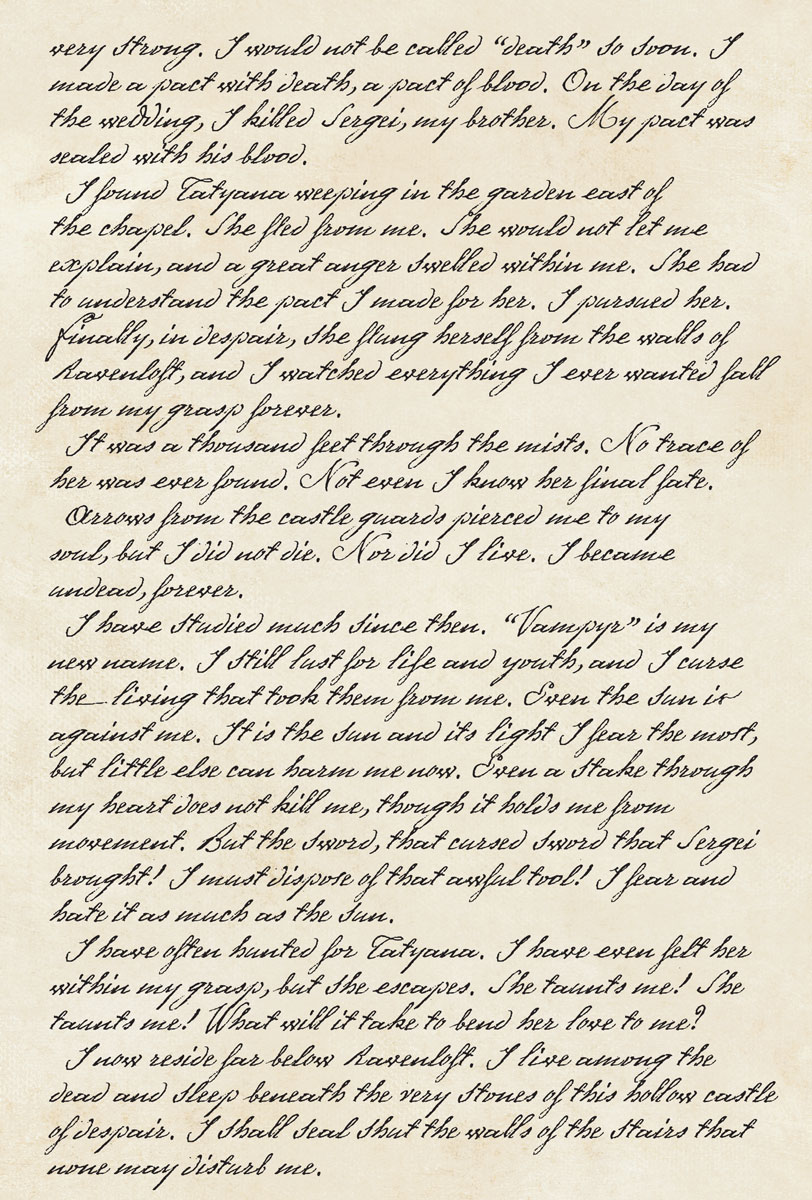 very strong. I would not be called “death” so soon. I
made a pact with death, a pact of blood. On the day of
the wedding, I killed Sergei, my brother. My pact was
sealed with his blood.
I found Tatyana weeping in the garden east of
the chapel. She fled from me. She would not let me
explain, and a great anger swelled within me. She had
to understand the pact I made for her. I pursued her.
Finally, in despair, she flung herself from the walls of
Ravenloft, and I watched everything I ever wanted fall
from my grasp forever.
It was a thousand feet through the mists. No trace of
her was ever found. Not even I know her final fate.
Arrows from the castle guards pierced me to my
soul, but I did not die. Nor did I live. I became
undead, forever.
I have studied much since then. “Vampyr” is my
new name. I still lust for life and youth, and I curse
the living that took them from me. Even the sun is
against me. It is the sun and its light I fear the most,
but little else can harm me now. Even a stake through
my heart does not kill me, though it holds me from
movement. But the sword, that cursed sword that Sergei
brought! I must dispose of that awful tool! I fear and
hate it as much as the sun.
I have often hunted for Tatyana. I have even felt her
within my grasp, but she escapes. She taunts me! She
taunts me! What will it take to bend her love to me?
I now reside far below Ravenloft. I live among the
dead and sleep beneath the very stones of this hollow castle
of despair. I shall seal shut the walls of the stairs that
none may disturb me.